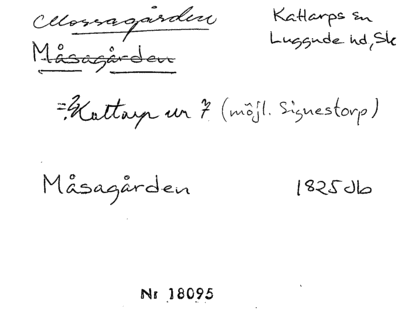 Mossagården Kattarps sn
Måsagården Luggude hd, Sk
=? Kattarp nr 7 (möjl. Signestorp)
Måsagården 1825 Jb
Nr 18095